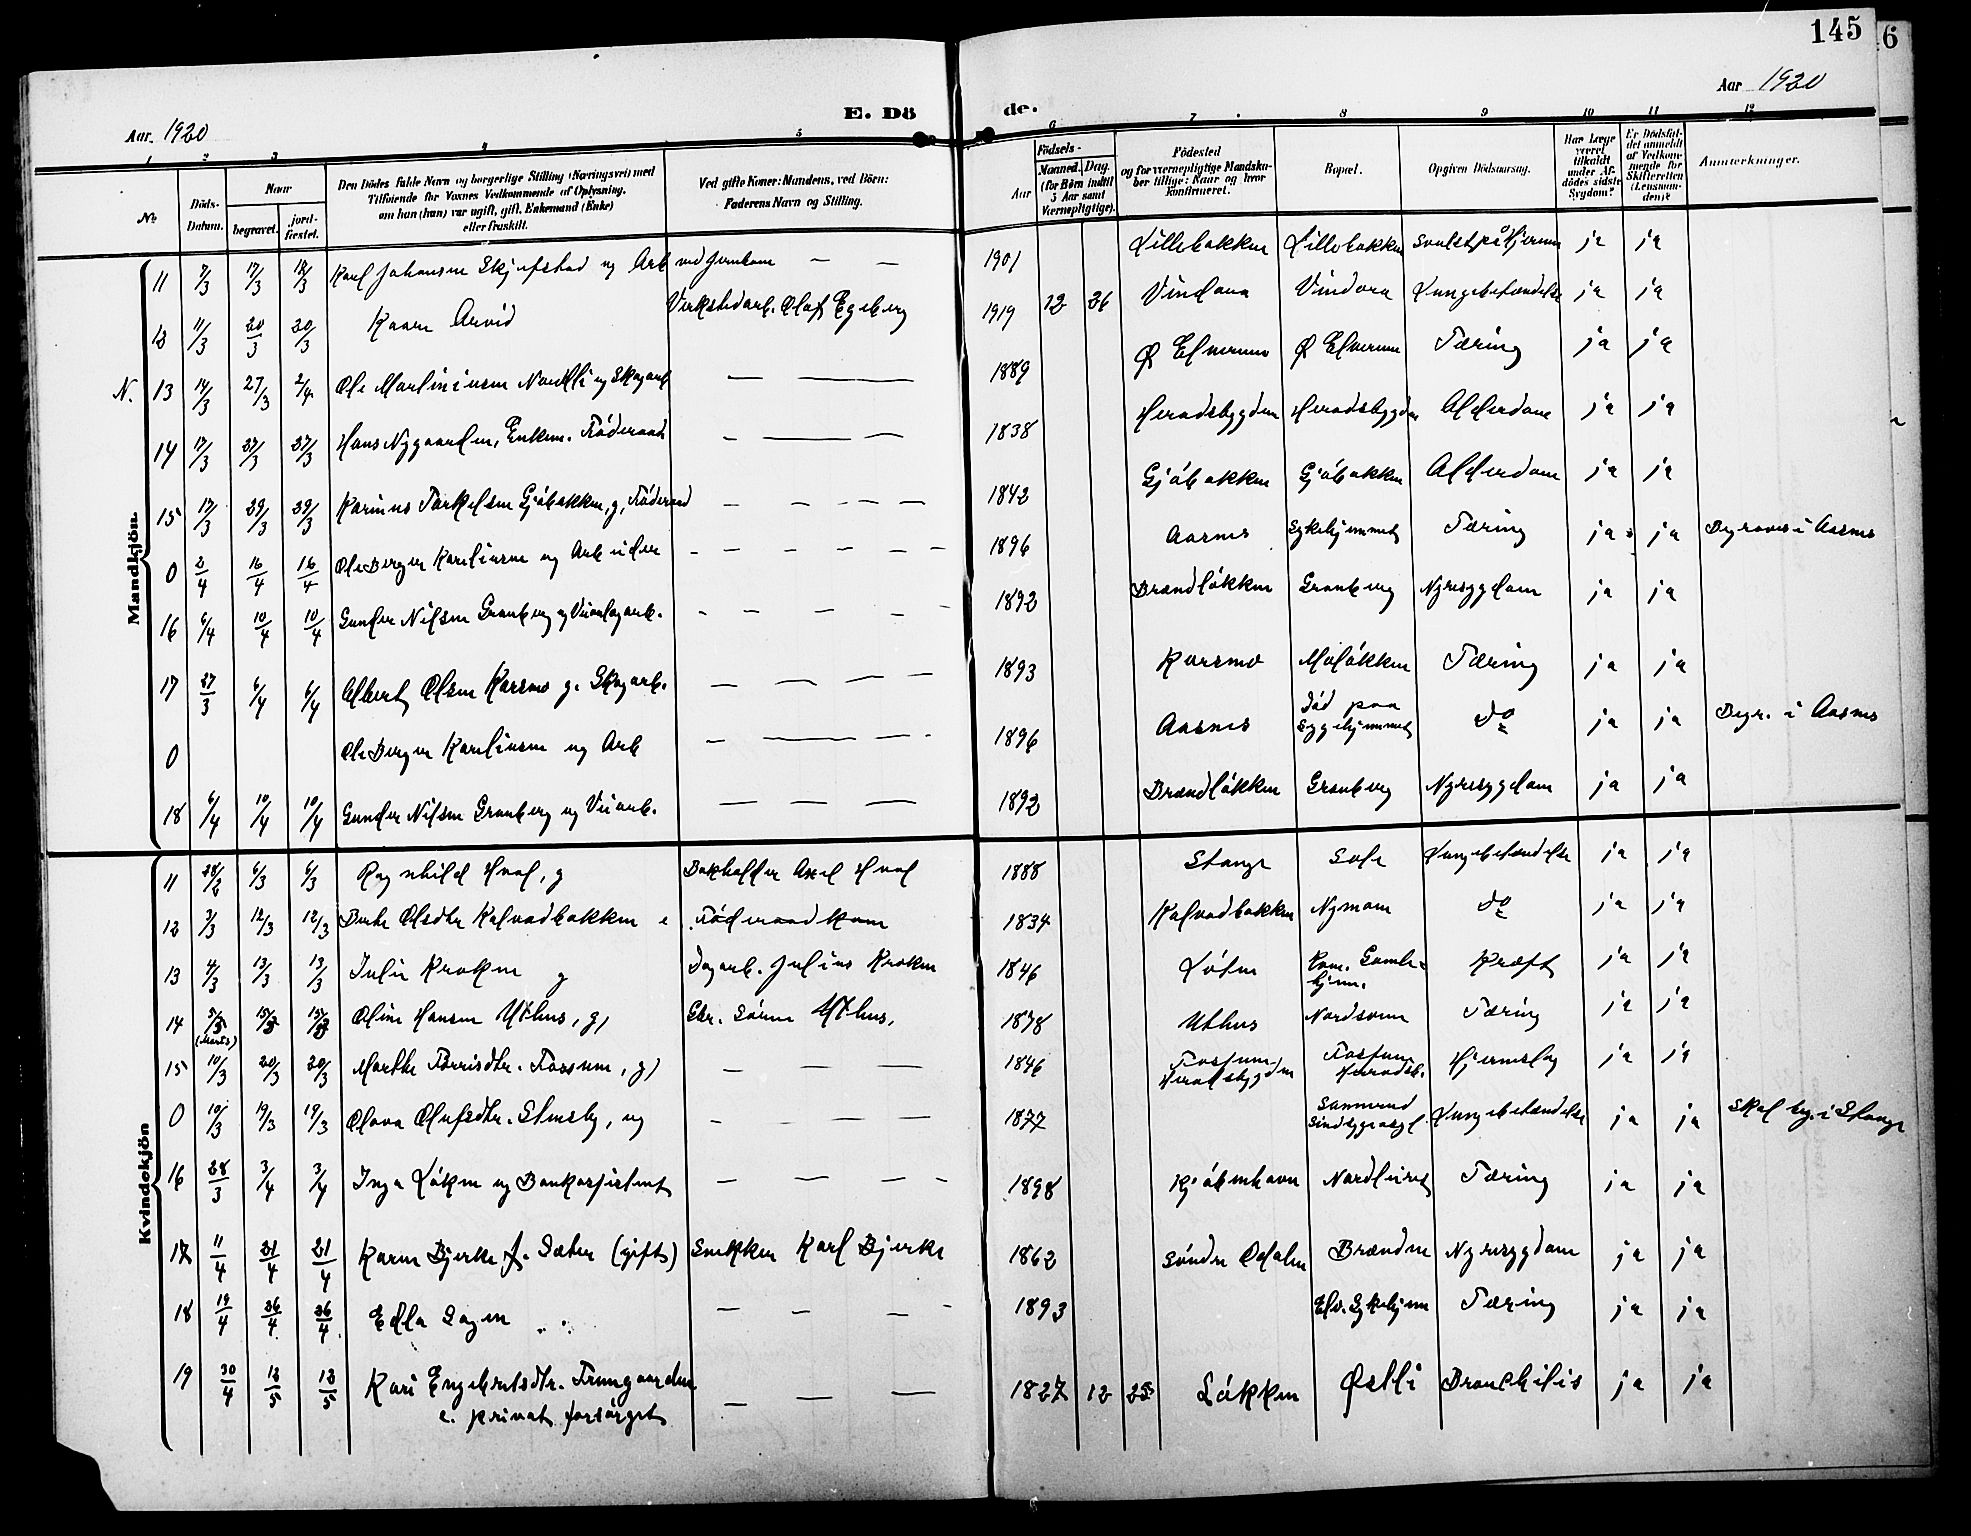 145
6
Aar 1920
E. Döde.
Aar 1920
1 2 3 4 5 6 7 8 9 10 11 12
No
Döds-Datum.
Naar
begravet.
jordfæstet.
Den Dödes fulde Navn og borgerlige Stilling (Næringsvei) med
Tilföiende for Voxnes Vedkommende af Oplysning,
om han (hun) var ugift, gift, Enkemand (Enke)
eller fraskilt.
Ved gifte Koner: Mandens, ved Börn:
Faderens Navn og Stilling.
Aar
Födsels-
Maaned. Dag.
(for Börn indtil
5 Aar samt
Værnepligtige).
Födested
og for værnepligtige Mandskaber tillige: Naar og hvor
konfirmeret.
Bopæl.
Opgiven Dödsaarsag.
Har Læge
været
tilkaldt
under Afdödes sidste
Sygdom?
Er Dödsfaldet anmeldt
af Vedkommende for
Skifteretten
(Lensmanden)?
Anmærkninger.
Mandkjön.
11 7/3 17/3 18/3 Karl Johansen Skjefstad ug Arb ved Jernban — — 1901 Lillebakken Lillebakken Svulst på Hjernen ja ja
12 11/3 20/3 20/3 Kaare Arvid Verkstedarb. Olaf Egeberg 1919 12 26 Vindora Vindora Lungebetændelse ja ja
N. 13 14/3 27/3 2/4 Ole Martiniusen ug Skogarb — — 1889 Ø Elverum Ø Elverum Tæring ja ja
14 17/3 27/3 27/3 Hans Nygaarden, Enkem. Föderaad — — — 1838 Heradsbygden Heradsbygden Alderdom ja ja
15 17/3 29/3 29/3 Karinus Torkelsen Gjöbakken, g, Föderaad — — — — 1842 Gjöbakken Gjöbakken Alderdom ja ja
0 2/4 16/4 16/4 Ole Berger Karelinsen ug Arbeider - — — — — — 1896 Aasnes Sykehjemmet Tæring ja ja Begraves i Aasnes
16 6/4 10/4 10/4 Gunder Nilsen Granberg ug Veianlægarb. - — — — 1892 Brændlökken Granberg Nyresygdom ja ja
17 27/3 6/4 6/4 Albert Olsen Karsmo g. Skogarb. — — — — 1893 Karsmo Moløkken Tæring ja ja
0 Ole Berger Karelinsen ug Arb — — — 1896 Aasnes Död paa Sygehjemmet do ja ja Begr. i Aasnes
18 6/4 10/4 10/4 Gunder Nilsen Granberg ug Veiarb. — — — 1892 Brændlökken Granberg Nyresygdom ja ja
Kvindekjön
11 28/2 6/3 6/3 Ragnhild Hval, g Bokholder Axel Hval 1888 Stange Lungebetændelse ja ja
12 3/3 12/3 12/3 Berte Olsdtr Kalvadbakken e Föderaadkone 1834 Kalvadbakken Nymoen do ja ja
13 4/3 13/3 13/3 Julie Kroken g Dagarb. Julius Kroken 1846 Löten Kom. Gamlehjem. Kræft ja ja
14 5/3 (Marts) 15/3 15/3 Oline Hansen Uthus, g, Gbr. Sören Uthus, 1878 Uthus Tæring ja ja
15 10/3 20/3 20/3 Marthe Torrisdtr. Fossum, g) — — — 1846 Fossum Heradsbygden Fossum Heradsb. Hjerneslag ja ja
0 10/3 19/3 19/3 Olava Olufsdtr. Stensby, ug — — — 1877 Sannerud Sindsygeasyl Lungebetændelse ja ja Skal beg. i Stange
16 28/3 3/4 3/4 Inga Löken ug Bankassistent — — — — 1898 Kjöbenhavn Tæring ja ja
17 11/4 21/4 21/4 Karen Bjerke f. Sæter (gift) Snekker Karl Bjerke 1862 Söndre Odalen Bræenden Nyresygdom ja ja
18 19/4 26/4 26/4 Edla Sagen — — — - 1893 Elv. Sykehjem Tæring ja ja
19 30/4 12/5 12/5 Kari Engebretsdtr. — — — 1827 12 25 Løkken Østli Bronchitis ja ja
e. privat forsörget